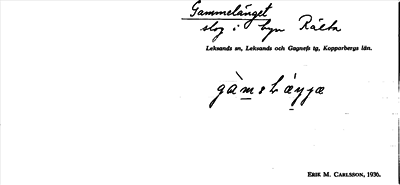 Gammelänget
slog i byn Rälta
Leksands sn, Leksands och Gagnefs tg, Kopparbergs län.
ERIK M. CARLSSON, 1936.